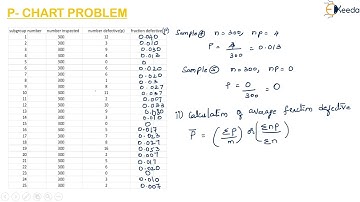 P- CHART PROBLEM
subgroup number number inspected number defective(s) fraction defective(P)
1 300 12 0.040
2 300 3 0.010
3 300 9 0.030
4 300 4 0.013
5 300 0 0
6 300 6 0.020
7 300 6 0.020
8 300 1 0.003
9 300 8 0.027
10 300 11 0.037
11 300 2 0.007
12 300 10 0.033
13 300 9 0.030
14 300 3 0.010
15 300 0 0
16 300 5 0.017
17 300 7 0.023
18 300 8 0.027
19 300 16 0.053
20 300 2 0.007
21 300 5 0.017
22 300 6 0.020
23 300 0 0
24 300 3 0.010
25 300 2 0.007
Sample④ n=300, np=4
P = 4/300 = 0.013
Sample⑤ n=300, np=0
P = 0/300 = 0
II) Calculation of average fraction defective
P̄ = (Σp/m) or (Σnp/Σn)
Ekeeda